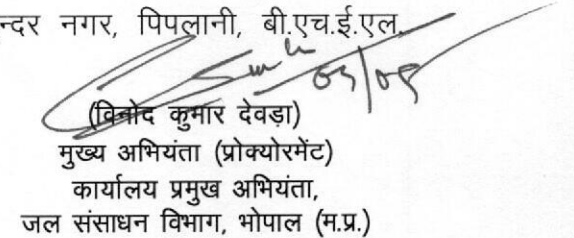 न्दर नगर, पिपलानी, बी.एच.ई.एल.
(विनोद कुमार देवड़ा)
मुख्य अभियंता (प्रोक्योरमेंट)
कार्यालय प्रमुख अभियंता,
जल संसाधन विभाग, भोपाल (म.प्र.)